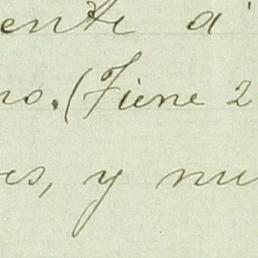 ente á
no. (Tiene 2
es, y nu